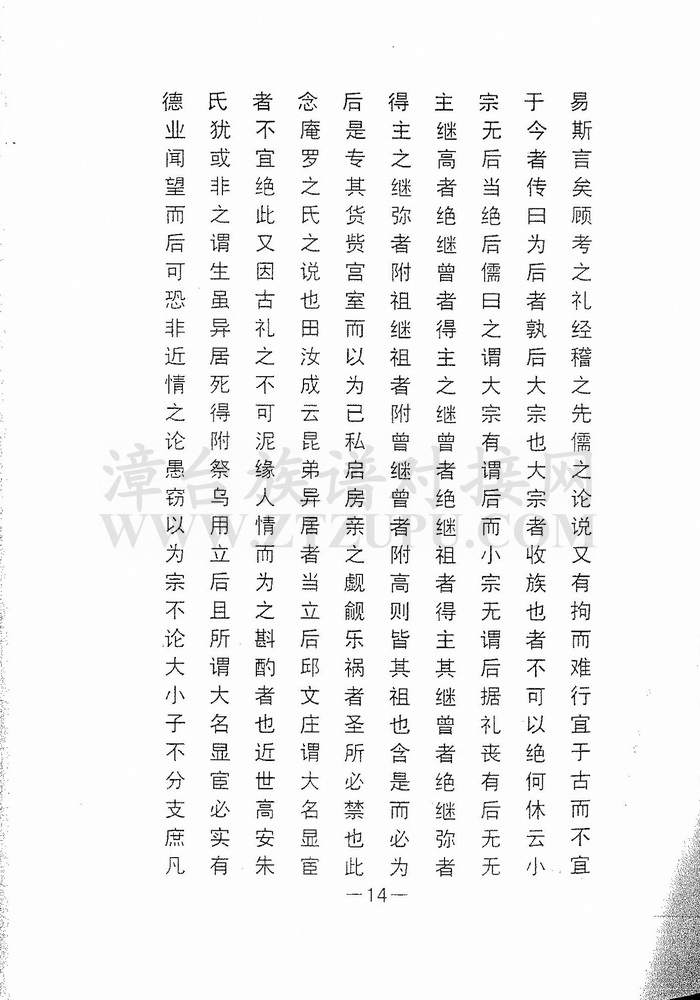 易斯言矣顾考之礼经稽之先儒之论说又有拘而难行宜于古而不宜
于今者传曰为后者孰后大宗也大宗者收族也者不可以绝何休云小
宗无后当绝后儒曰之谓大宗有谓后而小宗无谓后据礼丧有后无无
主继高者绝继曾者得主之继曾者绝继祖者得主其继曾者绝继弥者
得主之继弥者附祖继祖者附曾继曾者附高则皆其祖也含是而必为
后是专其货赀宫室而以为已私启房亲之觑觎乐祸者圣所必禁也此
念庵罗之氏之说也田汝成云昆弟异居者当立后邱文庄谓大名显宦
者不宜绝此又因古礼之不可泥缘人情而为之斟酌者也近世高安朱
氏犹或非之谓生虽异居死得附祭乌用立后且所谓大名显宦必实有
德业闻望而后可恐非近情之论愚窃以为宗不论大小子不分支庶凡
—14—
漳台族谱对接网
WWW.ZTZUPU.COM